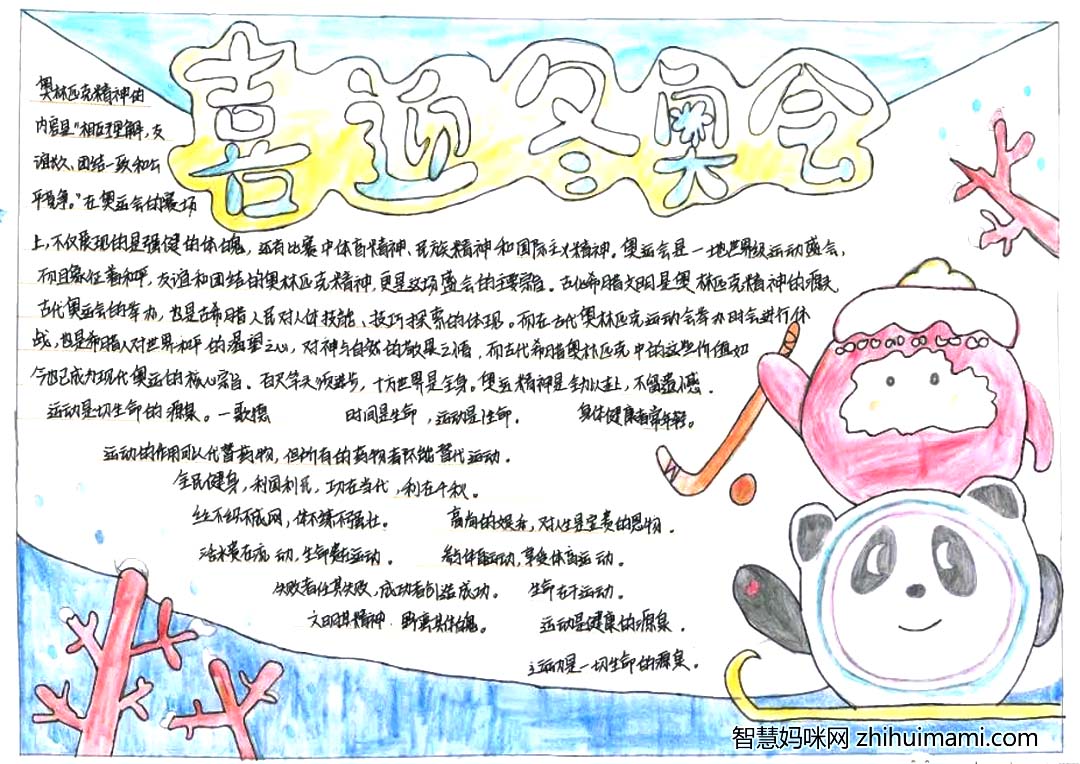 喜迎冬奥会
奥林匹克精神的
内容是“相互理解,友
谊长久、团结一致和公
平竞争。”在奥运会的赛场
上,不仅展现的是强健的体魄,还有比赛中体育精神、民族精神和国际主义精神。奥运会是一地世界级运动盛会,
而且象征着和平,友谊和团结的奥林匹克精神,更是这场盛会的主要宗旨。古代希腊文明是奥林匹克精神的源头
古代奥运会的举办,也是古希腊人民对人体技能、技巧探索的体现。而在古代奥林匹克运动会举办时会进行休
战,也是希腊人对世界和平的渴望之心,对神与自然的敬畏之情,而古代希腊奥林匹克中的这些价值如
今也已成为现代奥运的核心宗旨。百尺竿头须进步,十方世界是全身。奥运精神是全力以赴,不留遗憾.
运动是一切生命的源泉。一歌德 时间是生命,运动是生命. 身体健康者常年轻。
运动的作用可以代替药物,但所有的药物都不能替代运动。
全民健身,利国利民,功在当代,利在千秋。
丝不织不成网,体不练不强壮。 高尚的娱乐,对人生是宝贵的恩物.
治水贵在流动,生命贵在运动. 参与体育运动,享受体育运动.
失败者任其失败,成功者创造成功. 生命在于运动.
文明其精神 野蛮其体魄。 运动是健康的源泉.
运动是一切生命的源泉.
智慧妈咪网 zhihuimami.com